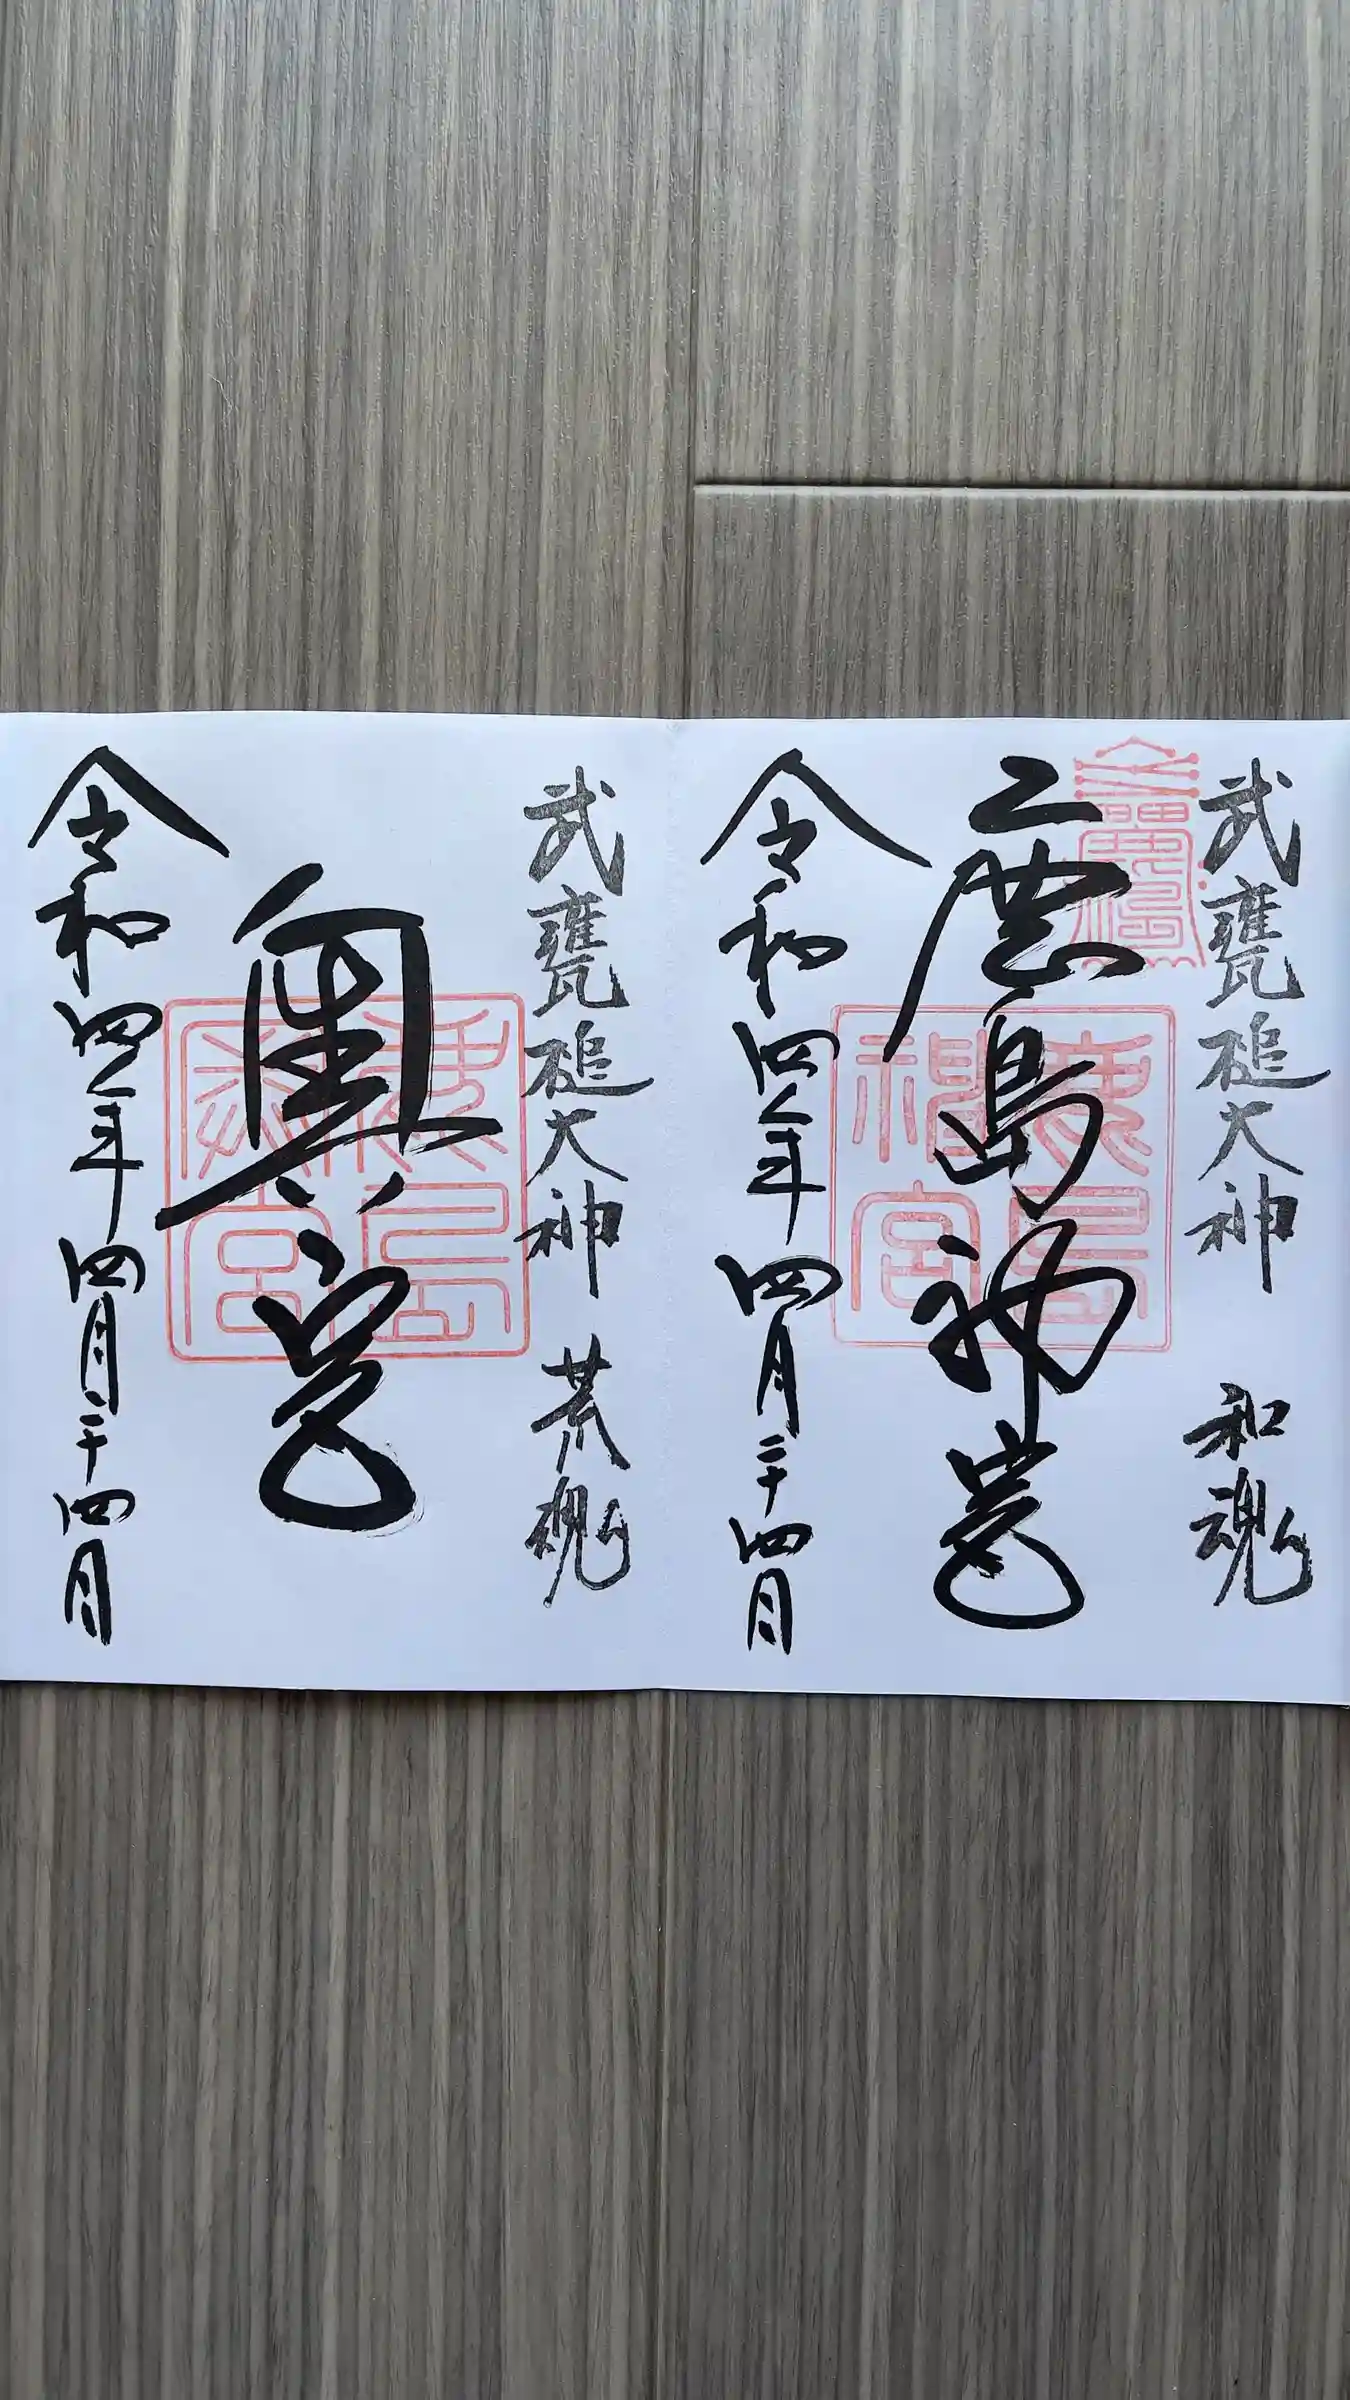 武甕槌大神 和魂
鹿島神宮
鹿島神宮
令和四年四月二十四日
武甕槌大神 荒魂
奥宮
鹿島奥宮
令和四年四月二十四日